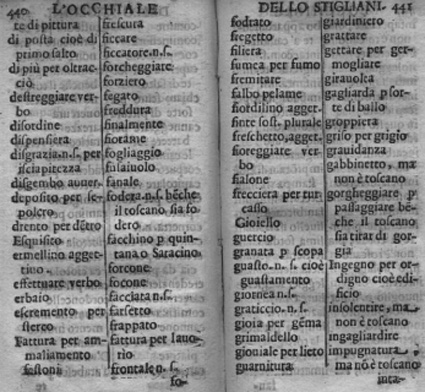 440 L'OCCHIALE
te di pittura
di posta cioè di
primo salto
di più per oltrac-
ciò
desireggiare ver-
bo
disordine
dispensiera
disgrazia.n.s. per
isciapitezza
disgembo auuer.
deposito per se-
polcro
drento per dētro
Esquisito
ermellino agget-
tiuo.
effettuare verbo
erbaio
escremento per
sterco
Fattura per am-
maliamento
festoni
frescura
ficcare
ficcatore.n.s.
forcheggiare
forziero
fegato
freddura
finalmente
fiorame
fogliaggio
fusaiuolo
fanale
fodera.n.s. bēche
il toscano sia fo-
dero
facchino p quin-
tana o Saracino
forcone
focone
facciata n.s.
farsetto
frappato
fattura per lauo-
rio
frontale n.s.
fo-
DELLO STIGLIANI. 441
fodrato
fregetto
filiera
fumea per fumo
fremitare
falbo pelame
fiordilino agget.
finte sost. plurale
freschetto, agget.
fioreggiare ver-
bo
fiasone
frecciera per tur-
casso
Gioiello
guercio
granata p scopa
guasto.n.s. cioè
guastamento
giornea n.s.
graticcio.n.s.
gioia per gēma
grimaldello
giouiale per lieto
guarnitura
giardiniero
grattare
gettare per ger-
mogliare
girauolta
gagliarda p sor-
te di ballo
groppiera
griso per grigio
grauidanza
gabbinetto, ma
non è toscano
gorgheggiare p
passaggiare bē-
che il toscano
sia tirar di gor-
gia
Ingegno per or-
digno cioè edi-
ficio
insolentire, ma
non è toscano
ingagliardire
impugnatura
ma nò è toscano
inta-